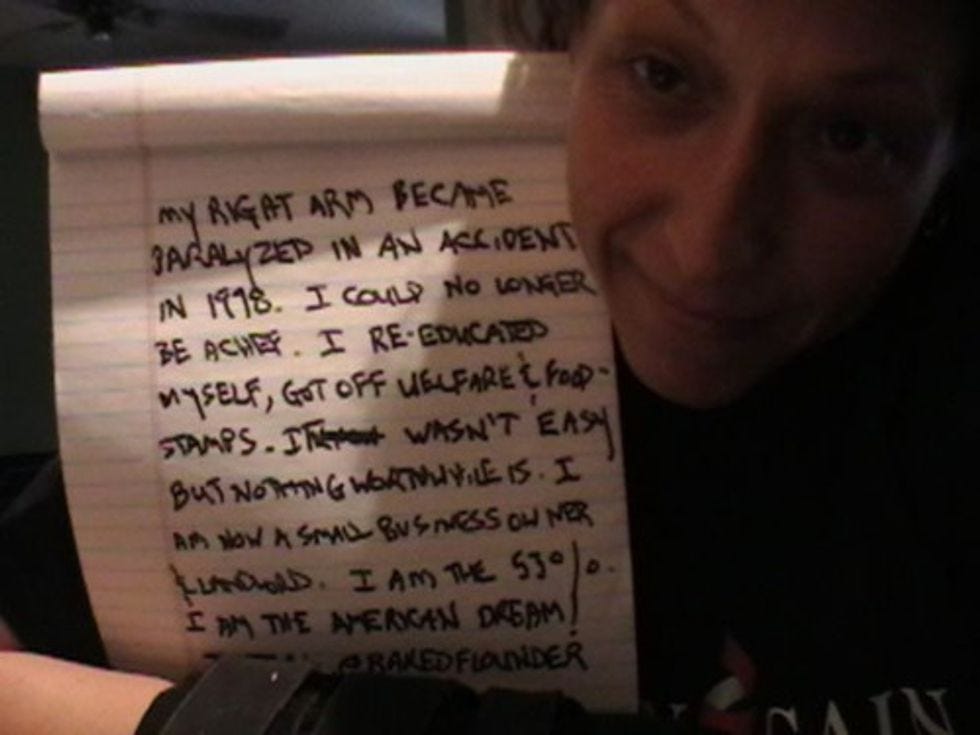 MY RIGHT ARM BECAME
PARALYZED IN AN ACCIDENT
IN 1998. I COULD NO LONGER
BE A CHEF. I RE-EDUCATED
MYSELF, GOT OFF WELFARE & FOOD-
STAMPS. IT WASN'T EASY
BUT NOTHING WORTHWHILE IS. I
AM NOW A SMALL BUSINESS OWNER
& LANDLORD. I AM THE 53%.
I AM THE AMERICAN DREAM!
@BAKEDFLOUNDER